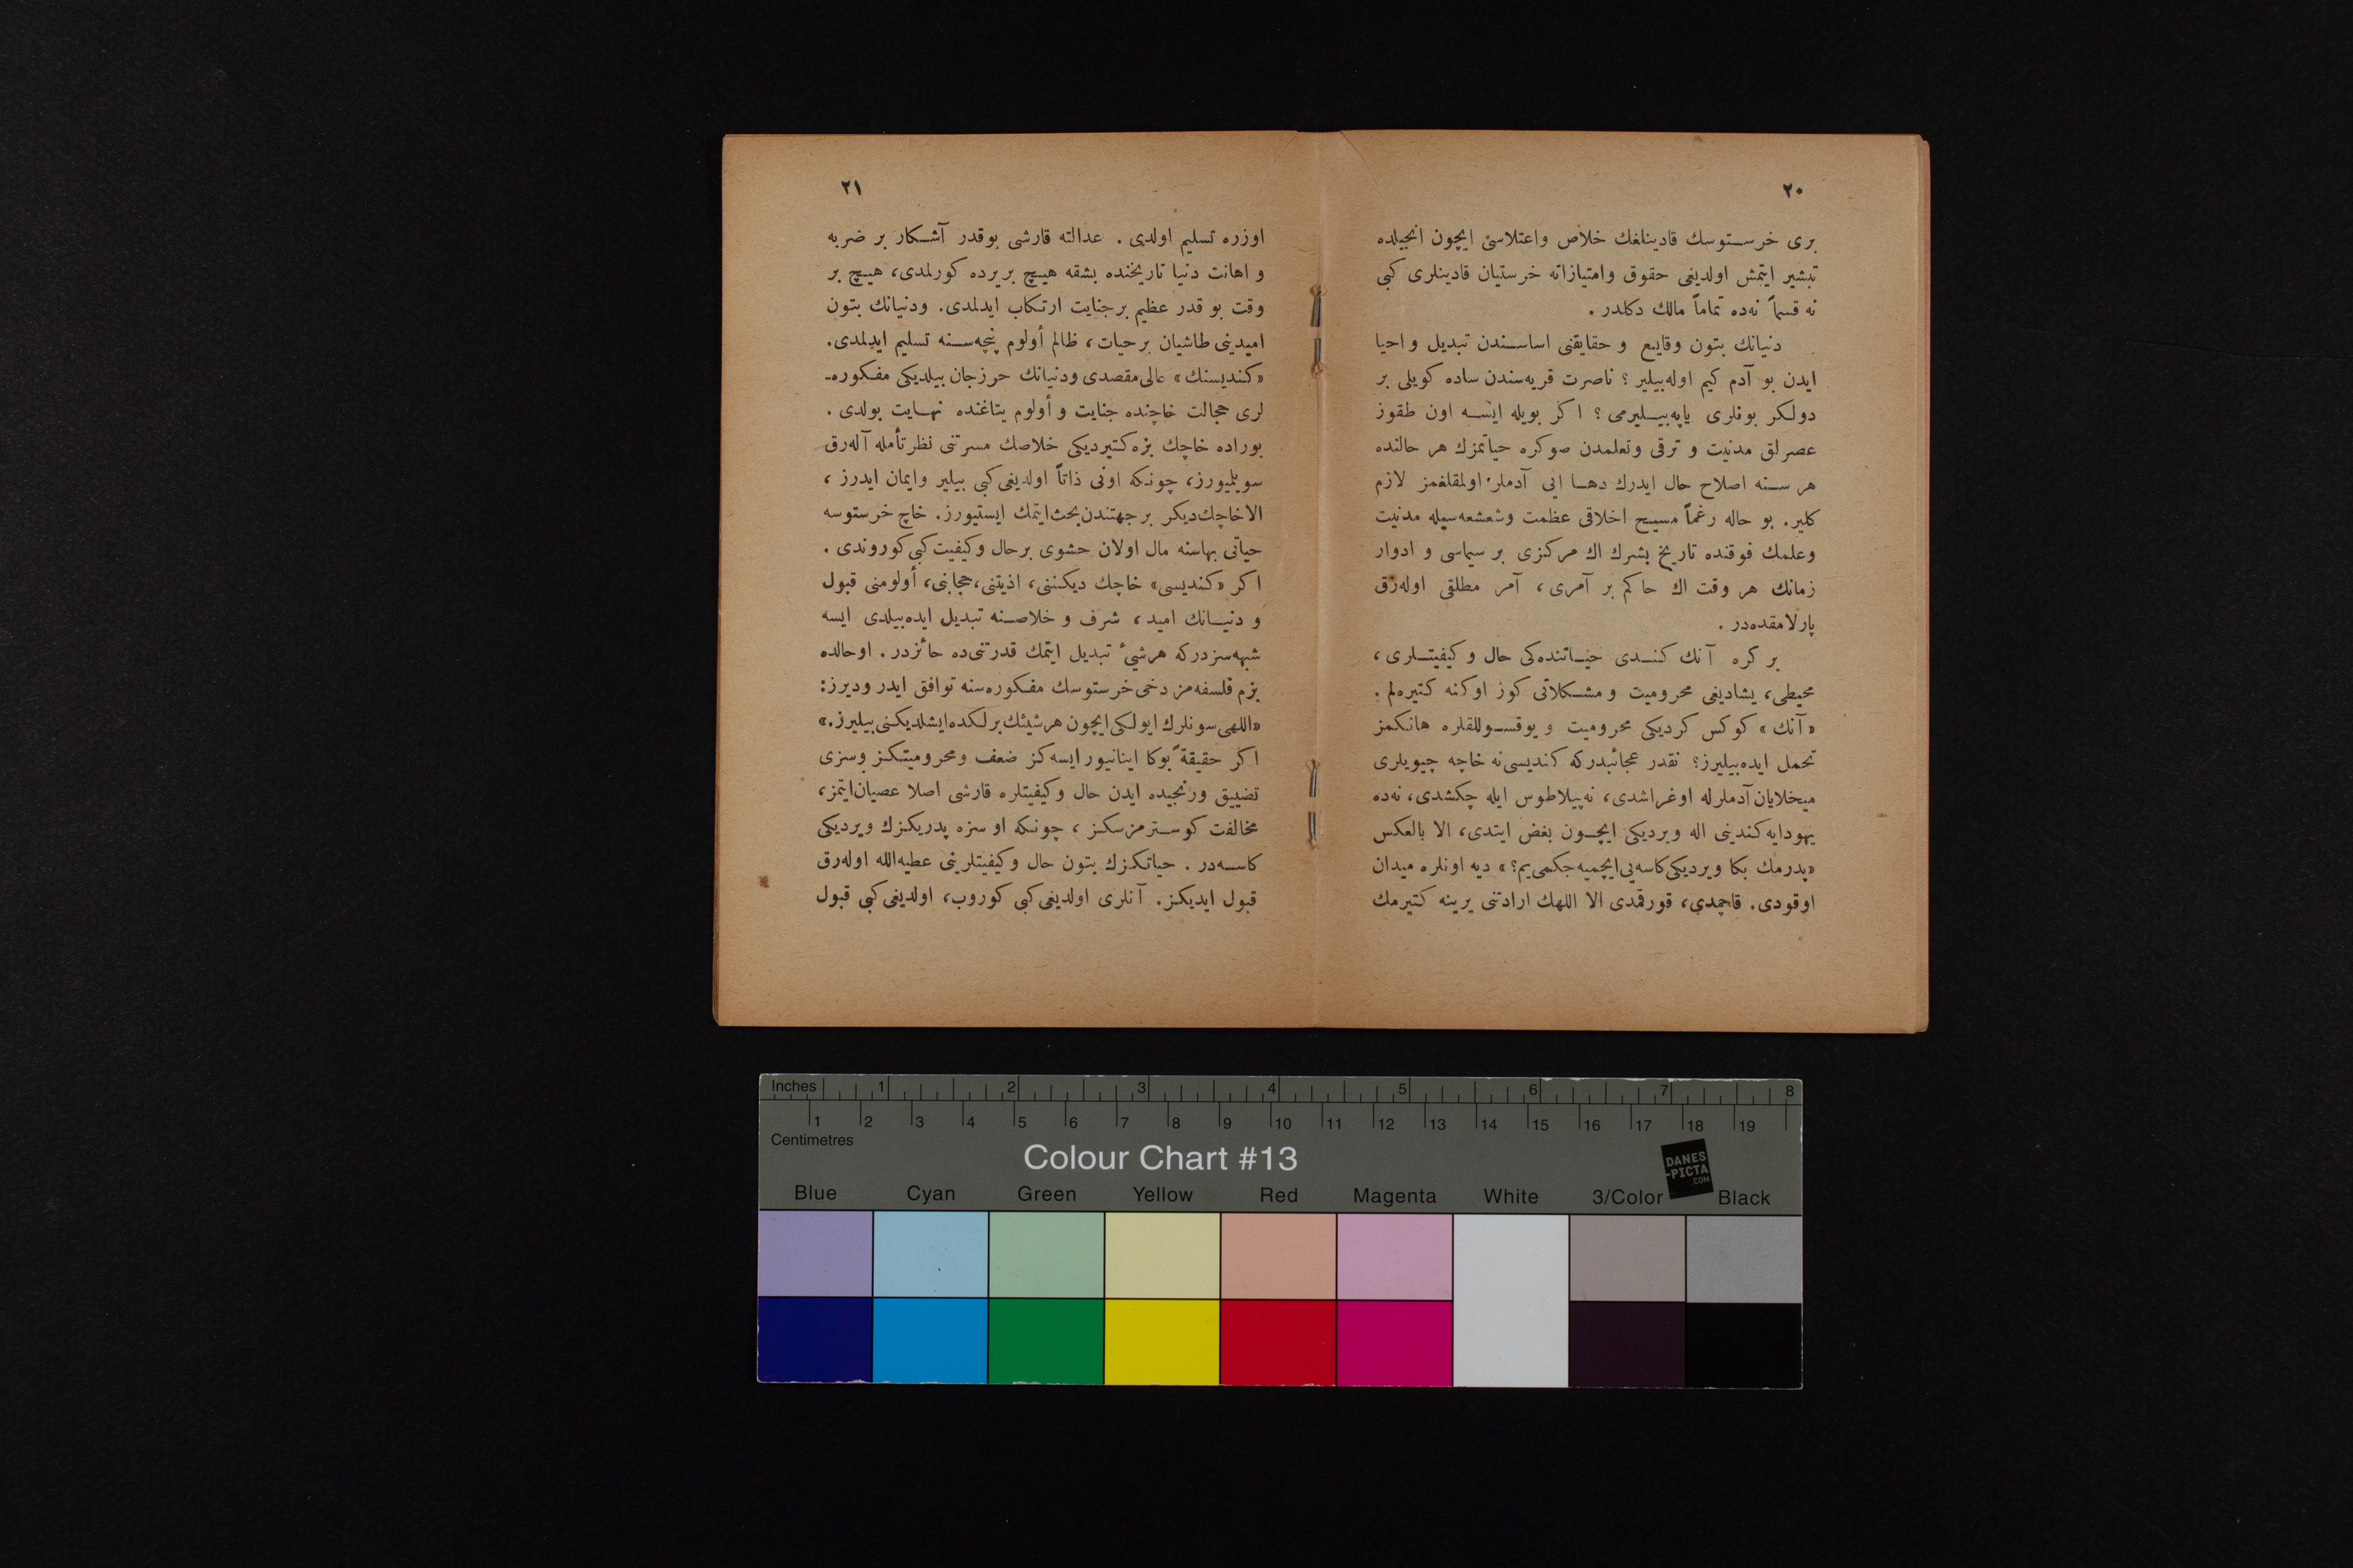 ٢٠
برى خرستوسك قادينلغك خلاص واعتلاسى ايچون انجيلده
تبشير ايتمش اولديغى حقوق وامتيازاته خرستيان قادينلرى كبى
نه قسماً نه‌ده تماماً مالك دكلدر .
دنيانك بتون وقايع و حقايقنى اساسندن تبديل و احيا
ايدن بو آدم كيم اوله‌بيلير ؟ ناصرت قريه‌سندن ساده كويلى بر
دولكر بونلرى ياپه‌بيليرمى ؟ اكر بويله ايسه اون طقوز
عصرلق مدنيت و ترقى وتعلمدن صوكره حياتمزك هر حالنده
هر سنه اصلاح حال ايدرك دها ايى آدملر اولمقلغمز لازم
كلير. بو حاله رغماً مسيح اخلاقى عظمت وشعشعه‌سيله مدنيت
وعلمك فوقنده تاريخ بشرك اك مركزى بر سياسى و ادوار
زمانك هر وقت اك حاكم بر آمرى ، آمر مطلقى اوله‌رق
پارلامقده‌در .
بر كره آنك كندى حياتنده‌كى حال و كيفيتلرى ،
محيطى، يشاديغى محروميت و مشكلاتى كوز اوكنه كتيره‌لم .
«آنك» كوكس كرديكى محروميت و يوقسوللقلره هانكمز
تحمل ايده‌بيليرز؟ نقدر عجائبدركه كنديسى نه خاچه چيويلرى
ميخلايان آدملرله اوغراشدى، نه پيلاطوس ايله چكشدى، نه‌ده
يهودايه كندينى اله ويرديكى ايچون بغض ايتدى، الا بالعكس
«پدرمك بكا ويرديكى كاسه‌يى ايچميه‌جكمى‌يم؟» ديه اونلره ميدان
اوقودى. قاچمدى، قورقمدى الا اللهك ارادتنى يرينه كتيرمك
٢١
اوزره تسليم اولدى . عدالته قارشى بوقدر آشكار بر ضربه
و اهانت دنيا تاريخنده بشقه هيچ بريرده كورلمدى، هيچ بر
وقت بو قدر عظيم برجنايت ارتكاب ايدلمدى. ودنيانك بتون
اميدينى طاشيان برحيات، ظالم أولوم پنچه‌سنه تسليم ايدلمدى.
«كنديسنك» عالى مقصدى ودنيانك حرزجان بيلديكى مفكوره‌ـ
لرى حجالت خاچنده جنايت و أولوم يتاغنده نهايت بولدى .
بوراده خاچك بزه كتيرديكى خلاصك مسرتنى نظرتأمله آله‌رق
سويليورز، چونكه اونى ذاتاً اولديغى كبى بيلير وايمان ايدرز ،
الا خاچك ديكر برجهتندن بحث ايتمك ايستيورز. خاچ خرستوسه
حياتى بهاسنه مال اولان حشوى برحال وكيفيت كبى كوروندى .
اكر «كنديسى» خاچك ديكننى، اذيتنى، حجابنى، أولومنى قبول
و دنيانك اميد ، شرف و خلاصنه تبديل ايده‌بيلدى ايسه
شبهه‌سزدركه هرشيئ تبديل ايتمك قدرتنى‌ده حائزدر . اوحالده
بزم فلسفه‌مز دخى خرستوسك مفكوره‌سنه توافق ايدر وديرز:
«اللهى سونلرك ايولكى ايچون هرشيئك برلكده ايشلديكنى بيليرز.»
اكر حقيقةً بوكا اينانيور ايسه‌كز ضعف ومحروميتكز وسزى
تضييق ورنجيده ايدن حال وكيفيتلره قارشى اصلا عصيان ايتمز،
مخالفت كوسترمزسكز ، چونكه او سزه پدريكزك ويرديكى
كاسه‌در . حياتكزك بتون حال وكيفيتلرينى عطيه‌الله اوله‌رق
قبول ايديكز. آنلرى اولديغى كبى كوروب، اولديغى كبى قبول
Inches 1 2 3 4 5 6 7 8
1 2 3 4 5 6 7 8 9 10 11 12 13 14 15 16 17 18 19
Centimetres
Colour Chart #13
DANES
-PICTA
.COM
Blue Cyan Green Yellow Red Magenta White 3/Color Black